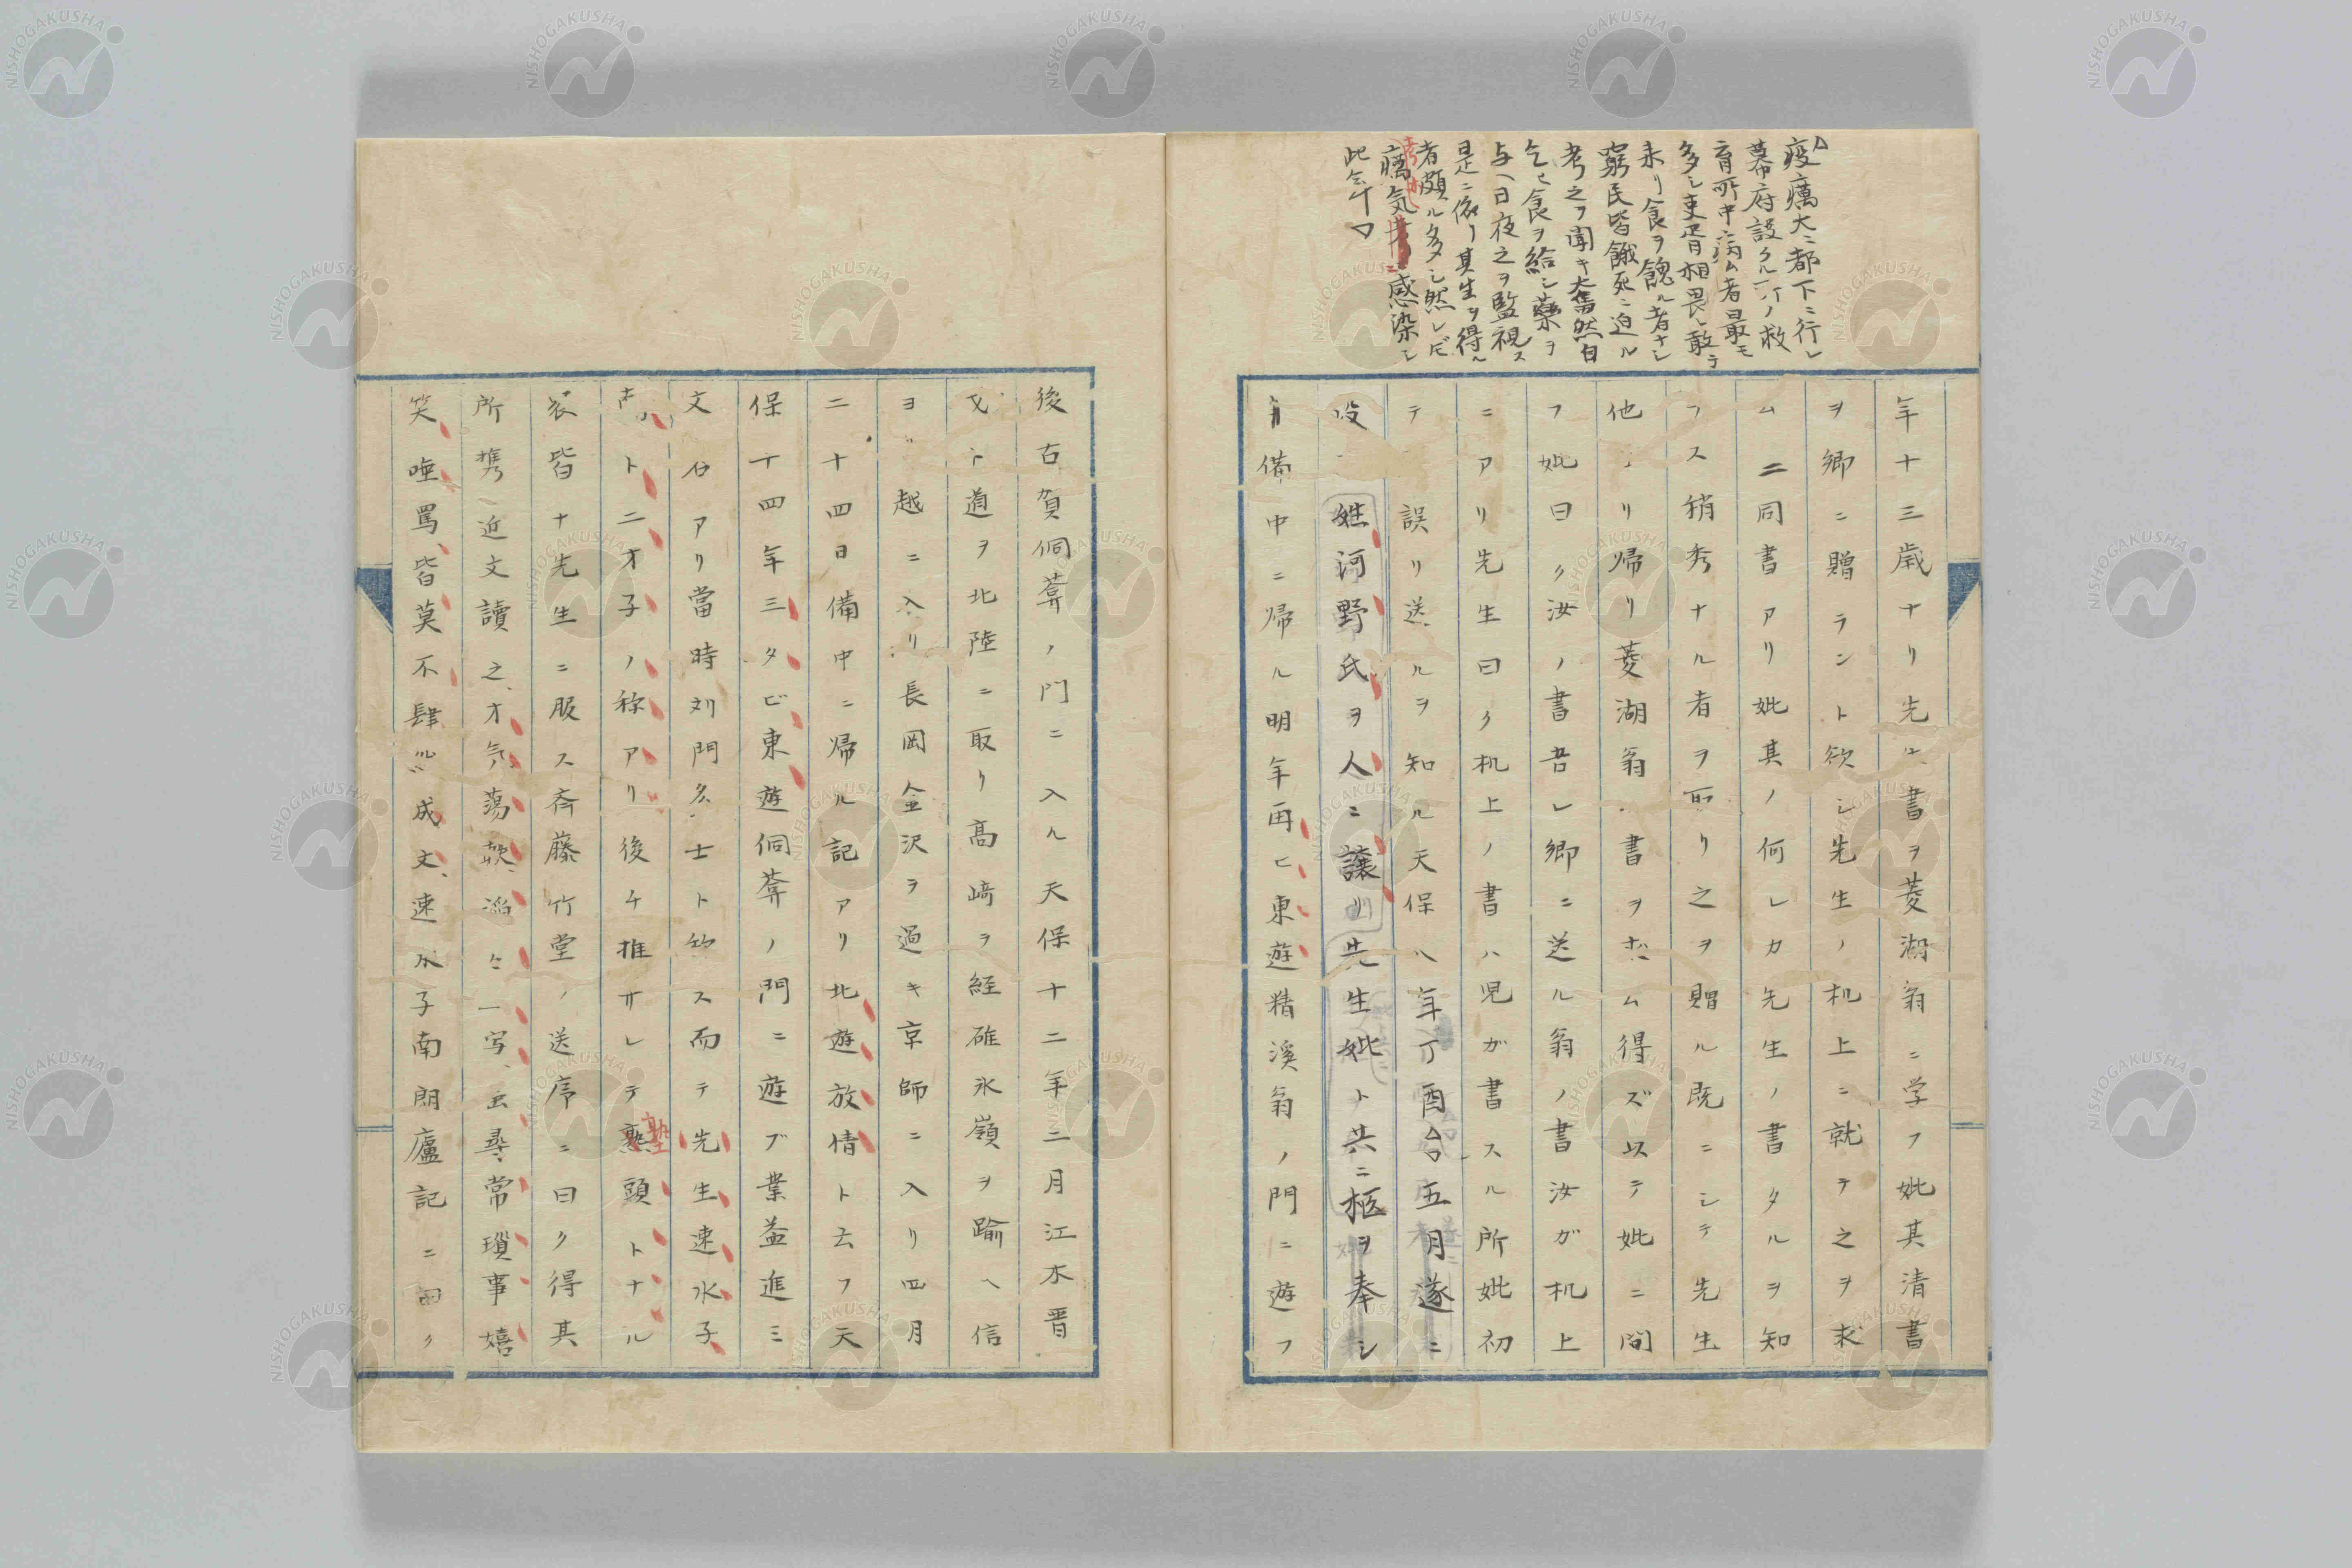 疫癘大ニ都下ニ行レ
幕府設クル所ノ救
育所中ニ病ム者最モ
多シ吏胥相畏レ敢テ
来リ食ヲ餽ル者ナシ
窮民皆餓死ニ迫ル
考之ヲ聞キ大奮然自
乞ヒ食ヲ給シ薬ヲ
与ヘ日夜之ヲ監視ス
是ニ依リ其生ヲ得ル
者頗ル多シ然レドモ
癘気ニ感染シ
此年
年十三歳ナリ先 書ヲ菱湖翁ニ学フ妣其清書
ヲ郷ニ贈ラント欲シ先生ノ机上ニ就テ之ヲ求
ム二同書アリ妣其ノ何レカ先生ノ書タルヲ知
ラス稍秀ナル者ヲ取リ之ヲ贈ル既ニシテ先生
他ヨリ帰リ菱湖翁ノ書ヲ求ム得ズ以テ妣ニ問
フ妣曰ク汝ノ書吾レ郷ニ送ル翁ノ書汝ガ机上
ニアリ先生曰ク机上ノ書ハ児ガ書スル所妣初
テ 誤リ送ルヲ知ル天保八年丁酉 五月遂ニ
没 姓河野氏ヲ人ニ譲リ先生妣ト共ニ柩ヲ奉シ
備中ニ帰ル明年再ヒ東遊精溪翁ノ門ニ遊フ
後古賀侗菴ノ門ニ入ル天保十二年二月江木晋
戈ト道ヲ北陸ニ取リ高崎ヲ経碓氷嶺ヲ踰ヘ信
ヨリ越ニ入リ長岡金沢ヲ過キ京師ニ入リ四月
二十四日備中ニ帰ル記アリ北遊放情ト云フ天
保十四年三タビ東遊侗菴ノ門ニ遊ブ業益進ミ
文名アリ當時刘門多士ト称ス而テ先生速水子
ト二才子ノ称アリ後チ推サレテ塾頭トナル
衆皆ナ先生ニ服ス斉藤竹堂ノ送序ニ曰ク得其
所携近文讀之才気蕩 一写 尋常瑣事嬉
笑唾罵皆莫不肆 成文速水子南朗廬記ニ曰ク
NISHOGAKUSHA